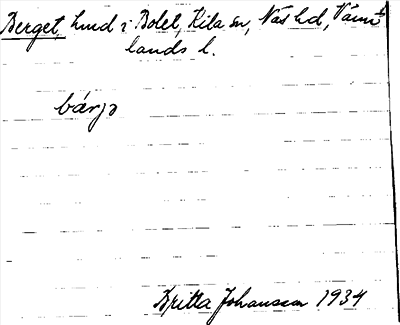 Berget, hmd i Bolet, Kila sn, Näs hd, Värm-
lands l.
bærjə
Britta Johansson 1934